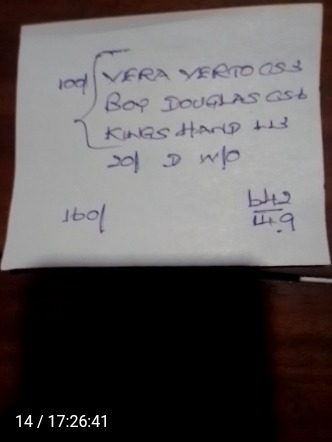 100/ VERA VERTO GS3
BOP DOUGLAS GS6
KINGS HAND H3
20/ D W/O
160/
642
14.9
14 / 17:26:41